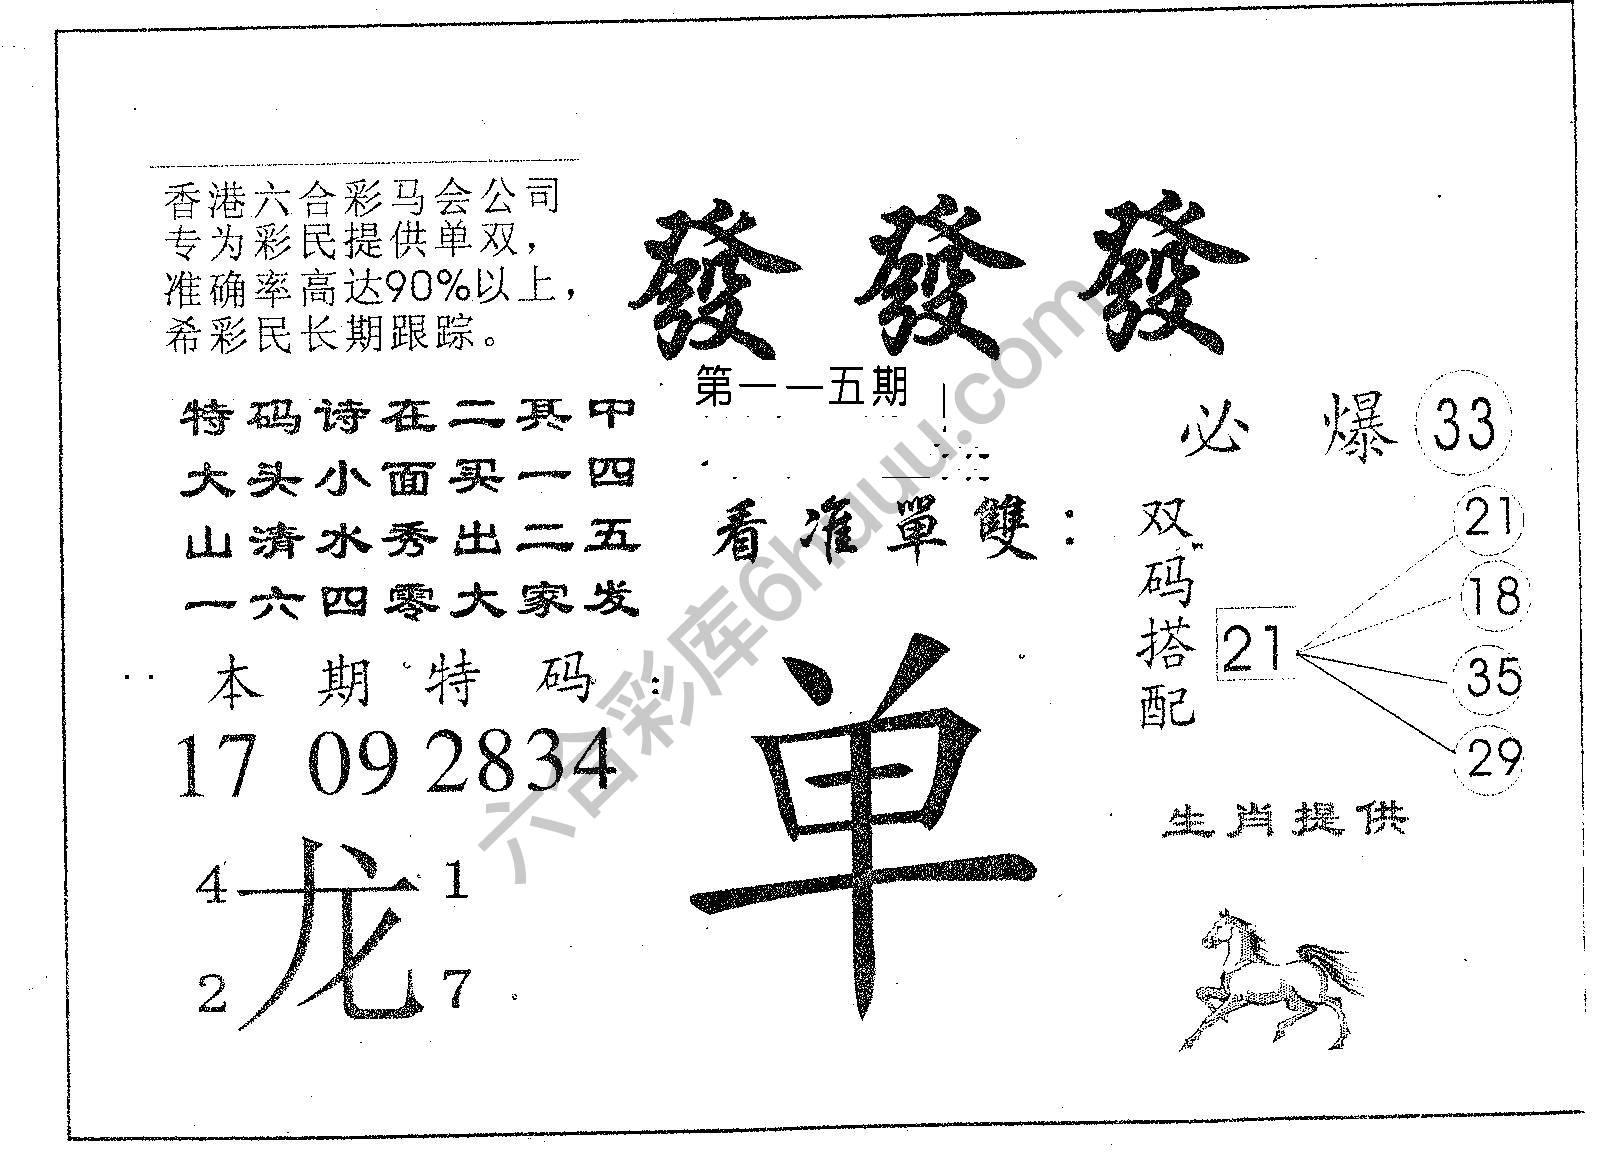 香港六合彩马会公司
专为彩民提供单双，
准确率高达90%以上，
希彩民长期跟踪。
發發發
第一一五期
特码诗在二其中
大头小面买一四
山清水秀出二五
一六四零大家发
本期特码：
17 09 28 34
4 1
龙
2 7
看准單雙：
单
必爆 33
双码搭配
21
21
18
35
29
生肖提供
六合彩库6huuu.com